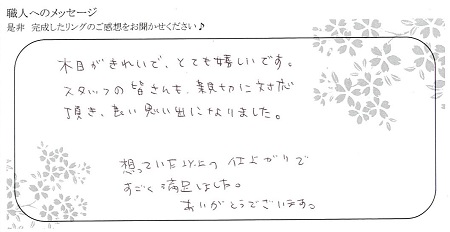 職人へのメッセージ
是非 完成したリングのご感想をお聞かせください♪
木目がきれいで、とても嬉しいです。
スタッフの皆さんも、親切に対応
頂き、良い思い出になりました。
想っていた以上の仕上がりで
すごく満足しました。
ありがとうございます。